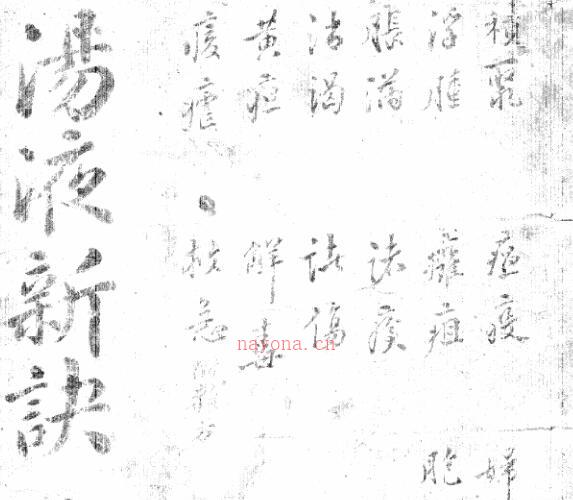 積聚 瘟疫 婦
浮腫 癰疽 胞
脹滿
消渴 諸傷
黃疸 解毒
痎瘧 救急
湯液新訣
nayona.cn